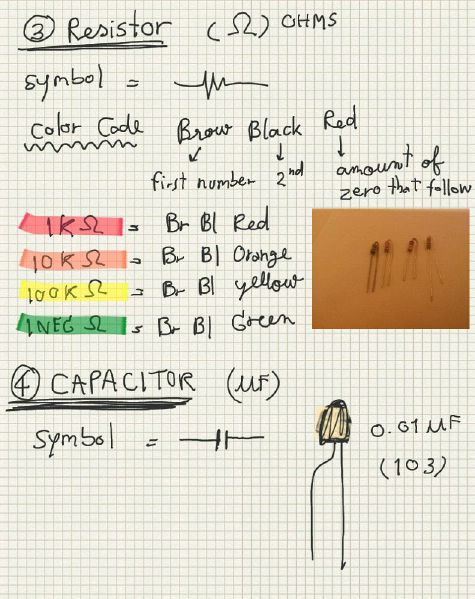 ③ Resistor (Ω) OHMS
symbol =
Color Code Brow Black Red
first number 2nd amount of
zero that follow
1KΩ = Br Bl Red
10KΩ = Br Bl Orange
100KΩ = Br Bl yellow
1NEGΩ = Br Bl Green
④ CAPACITOR (μF)
symbol =
0.01μF
(103)